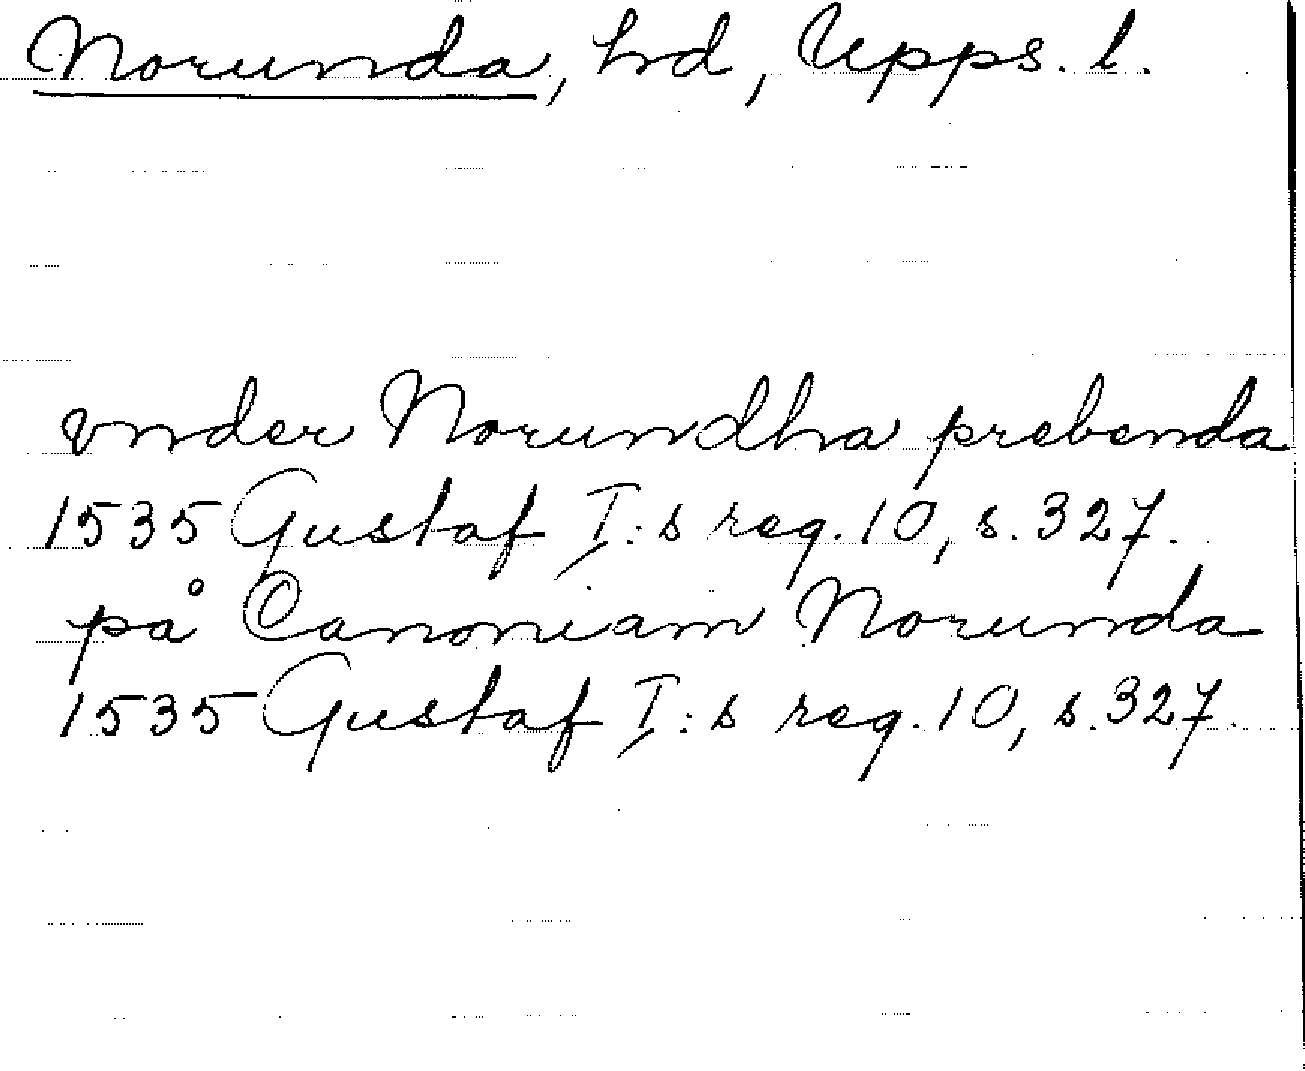 Norunda, hd, Upps. l.
vnder Norundha prebenda
1535 Gustaf I:s reg. 10, s. 327.
på Canoniam Norunda
1535 Gustaf I:s reg. 10, s. 327.